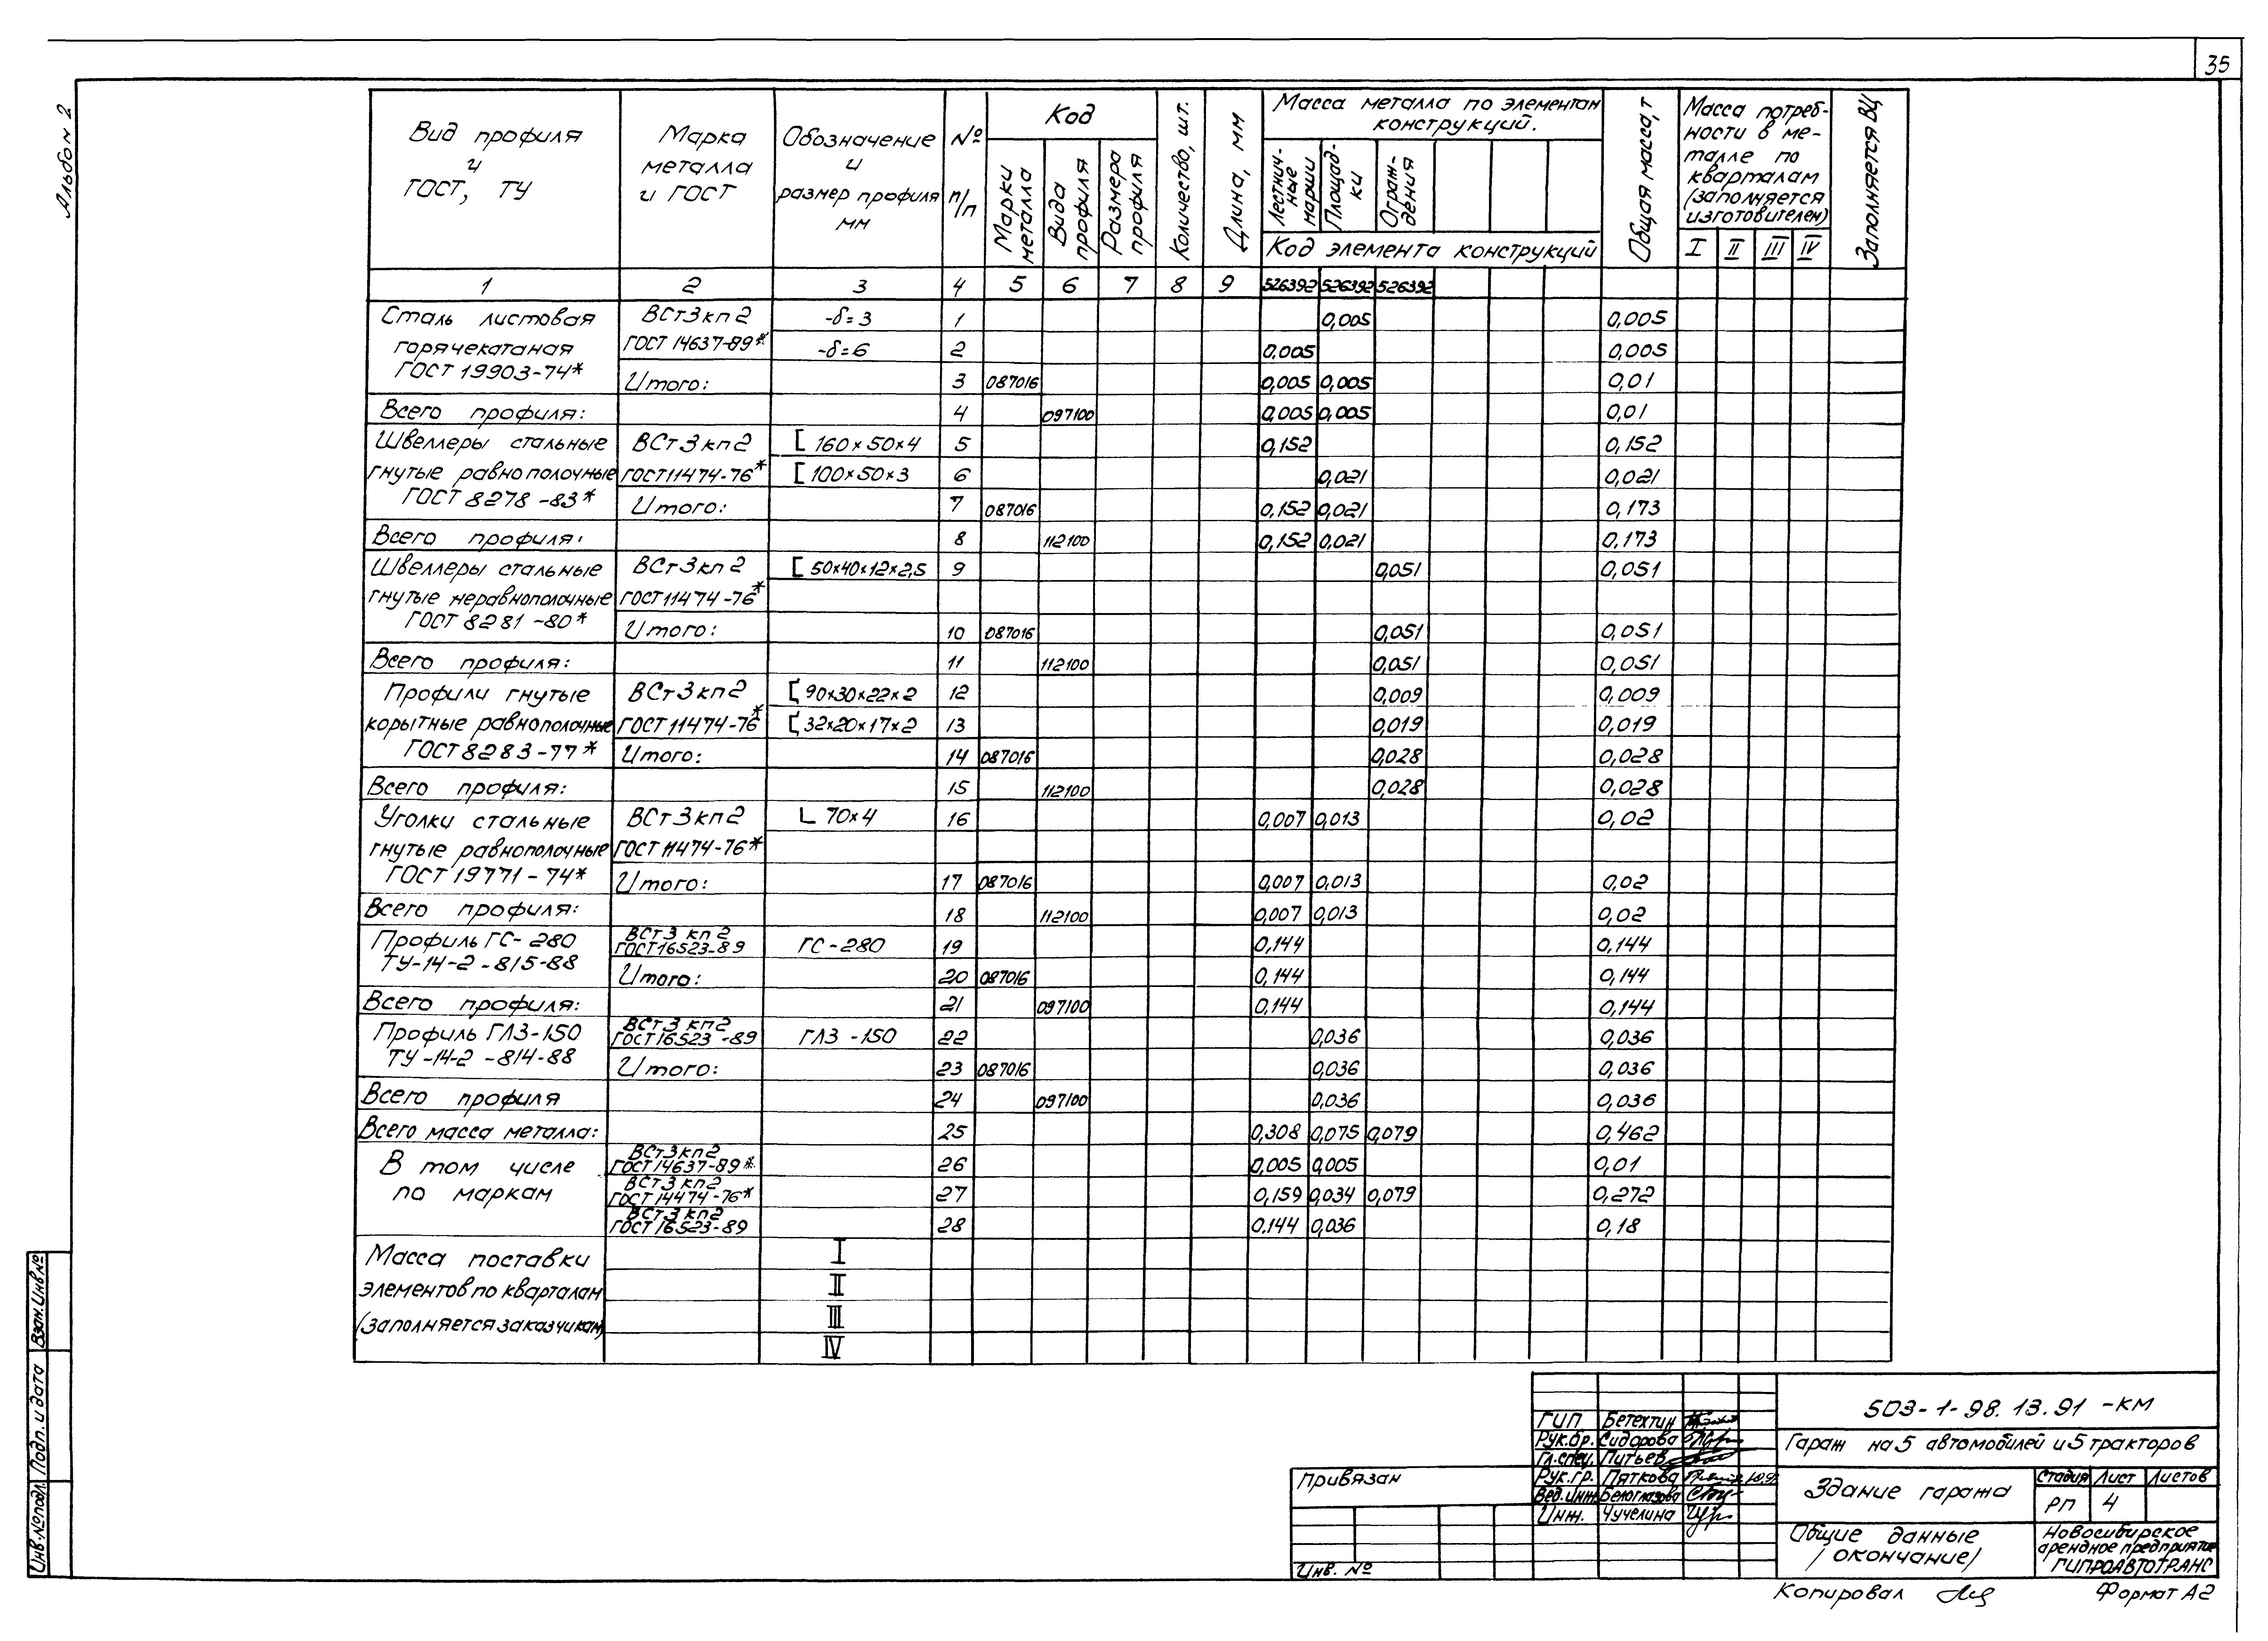 35
Альбом 2
Вид профиля и ГОСТ, ТУ
Марка металла и ГОСТ
Обозначение и размер профиля мм
№ п/п
Код
Марки металла
Вида профиля
Размера профиля
Количество, шт.
Длина, мм
Масса металла по элементам конструкций.
Лестничные марши
Площадки
Ограждения
Код элемента конструкций
Общая масса, т
Масса потребности в металле по кварталам (заполняется изготовителем)
I II III IV
Заполняется ВЦ
1 2 3 4 5 6 7 8 9 526392 526392 526392
Сталь листовая ВСт3кп2 -δ=3 1 0,005 0,005
горячекатаная ГОСТ 14637-89* -δ=6 2 0,005 0,005
ГОСТ 19903-74* Итого: 3 087016 0,005 0,005 0,01
Всего профиля: 4 097100 0,005 0,005 0,01
Швеллеры стальные ВСт3кп2 [ 160×50×4 5 0,152 0,152
гнутые равнополочные ГОСТ 11474-76* [ 100×50×3 6 0,021 0,021
ГОСТ 8278-83* Итого: 7 087016 0,152 0,021 0,173
Всего профиля: 8 112100 0,152 0,021 0,173
Швеллеры стальные ВСт3кп2 [ 50×40×12×2,5 9 0,051 0,051
гнутые неравнополочные ГОСТ 11474-76*
ГОСТ 8281-80* Итого: 10 087016 0,051 0,051
Всего профиля: 11 112100 0,051 0,051
Профили гнутые ВСт3кп2 [ 90×30×22×2 12 0,009 0,009
корытные равнополочные ГОСТ 11474-76* [ 32×20×17×2 13 0,019 0,019
ГОСТ 8283-77* Итого: 14 087016 0,028 0,028
Всего профиля: 15 112100 0,028 0,028
Уголки стальные ВСт3кп2 ∟ 70×4 16 0,007 0,013 0,02
гнутые равнополочные ГОСТ 11474-76*
ГОСТ 19771-74* Итого: 17 087016 0,007 0,013 0,02
Всего профиля: 18 112100 0,007 0,013 0,02
Профиль ГС-280 ВСт3 кп2 ГОСТ 16523-89 ГС-280 19 0,144 0,144
ТУ-14-2-815-88 Итого: 20 087016 0,144 0,144
Всего профиля: 21 097100 0,144 0,144
Профиль ГЛЗ-150 ВСт3 кп2 ГОСТ 16523-89 ГЛЗ-150 22 0,036 0,036
ТУ-14-2-814-88 Итого: 23 087016 0,036 0,036
Всего профиля 24 097100 0,036 0,036
Всего масса металла: 25 0,308 0,075 0,079 0,462
В том числе ВСт3кп2 ГОСТ 14637-89* 26 0,005 0,005 0,01
по маркам ВСт3 кп2 ГОСТ 14474-76* 27 0,159 0,034 0,079 0,272
ВСт3 кп2 ГОСТ 16523-89 28 0,144 0,036 0,18
Масса поставки I
элементов по кварталам II
(заполняется заказчиком) III
IV
Взам. Инв №
Подп. и дата
Инв. № подл.
Привязан
Инв. №
ГИП Бетехтин
Рук.бр. Сидорова
Гл.спец. Питьев
Рук.гр. Пяткова
Вед.инж. Белоглазова
Инж. Чучелина
503-1-98.13.91 -КМ
Гараж на 5 автомобилей и 5 тракторов
Здание гаража
Стадия Лист Листов
РП 4
Общие данные
/окончание/
Новосибирское
арендное предприятие
ГИПРОАВТОТРАНС
Копировал
Формат А2